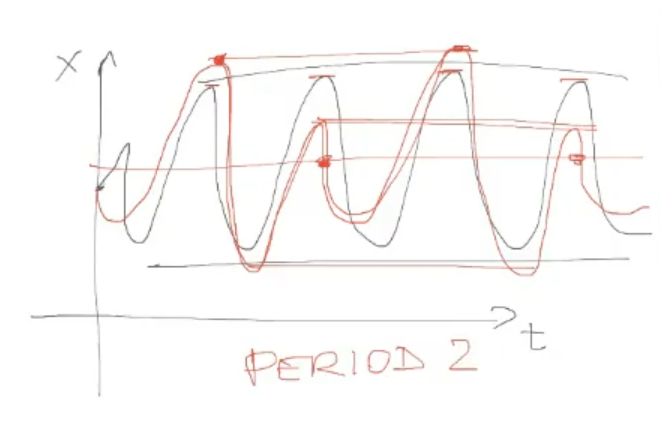 X
t
PERIOD 2